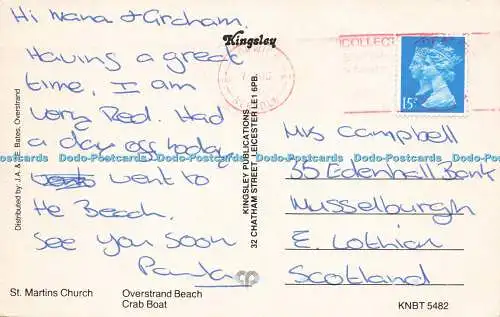 Hi Nana & Graham.
Having a great
time, I am
very Red. Had
a day off today,
went to
the Beach.
See you soon
Paula
Kingsley
KINGSLEY PUBLICATIONS
32 CHATHAM STREET, LEICESTER LE1 6PB.
Distributed by J.A. & E. Bates, Overstrand
COLLECT
15
Mrs Campbell
35 Edenhall Bank
Musselburgh
E. Lothian
Scotland
Dodo-Postcards Dodo-Postcards Dodo-Postcards Dodo-Postcards Dodo-Postcards Dodo-Postcards
St. Martins Church
Overstrand Beach
Crab Boat
KNBT 5482